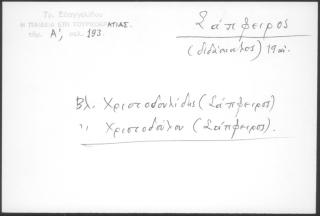 Τρ. Ευαγγελίδου
Η ΠΑΙΔΕΙΑ ΕΠΙ ΤΟΥΡΚΟΚΡΑΤΙΑΣ.
τόμ. Α', σελ. 193.
Σάπφειρος
(διδάσκαλος) 19 αι.
Βλ. Χριστοδουλίδης (Σάπφειρος)
" Χριστοδούλου (Σάπφειρος).